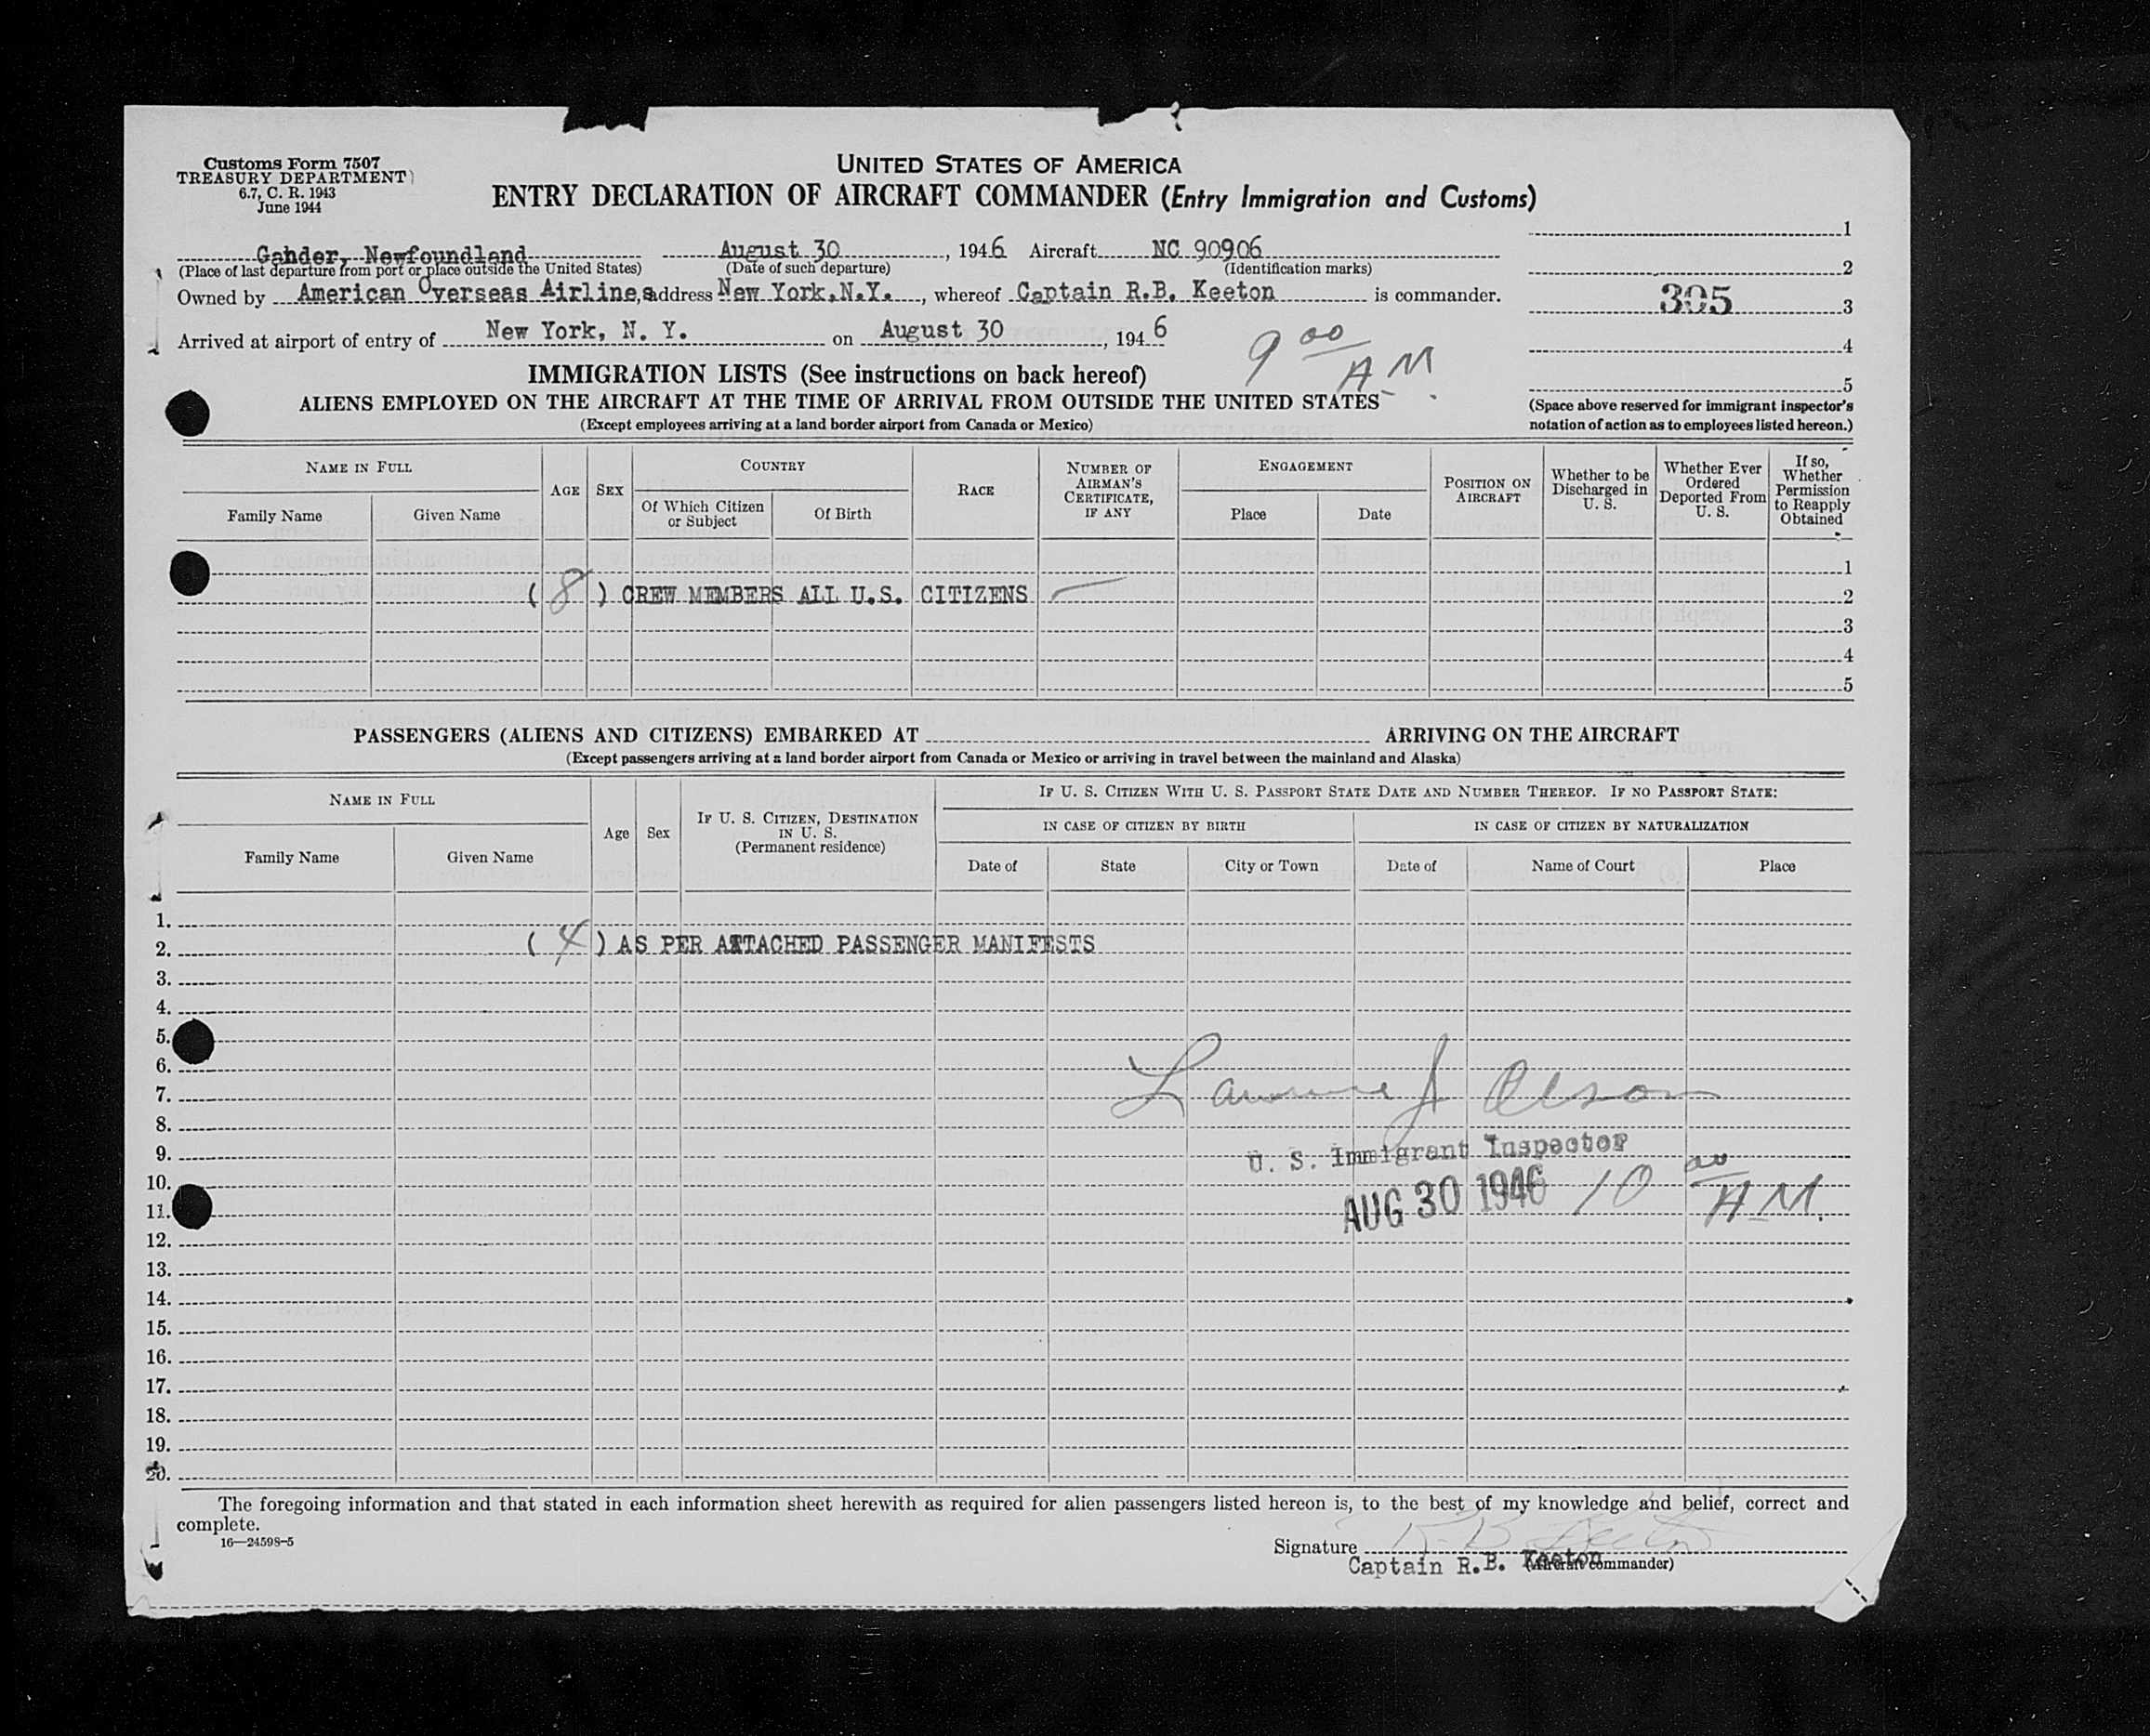 Customs Form 7507
TREASURY DEPARTMENT
6.7, C. R. 1943
June 1944
UNITED STATES OF AMERICA
ENTRY DECLARATION OF AIRCRAFT COMMANDER (Entry Immigration and Customs)
Gander, Newfoundland August 30, 1946 Aircraft NC 90906
(Place of last departure from port or place outside the United States) (Date of such departure) (Identification marks)
Owned by American Overseas Airlines, address New York, N.Y., whereof Captain R.B. Keeton is commander.
Arrived at airport of entry of New York, N. Y. on August 30, 1946
9 00 AM.
1
2
305 3
4
5
(Space above reserved for immigrant inspector's
notation of action as to employees listed hereon.)
IMMIGRATION LISTS (See instructions on back hereof)
ALIENS EMPLOYED ON THE AIRCRAFT AT THE TIME OF ARRIVAL FROM OUTSIDE THE UNITED STATES
(Except employees arriving at a land border airport from Canada or Mexico)
NAME IN FULL
Family Name Given Name
AGE SEX
COUNTRY
Of Which Citizen or Subject Of Birth
RACE
NUMBER OF AIRMAN'S CERTIFICATE, IF ANY
ENGAGEMENT
Place Date
POSITION ON AIRCRAFT
Whether to be Discharged in U. S.
Whether Ever Ordered Deported From U. S.
If so, Whether Permission to Reapply Obtained
1
( 8 ) CREW MEMBERS ALL U.S. CITIZENS — 2
3
4
5
PASSENGERS (ALIENS AND CITIZENS) EMBARKED AT ARRIVING ON THE AIRCRAFT
(Except passengers arriving at a land border airport from Canada or Mexico or arriving in travel between the mainland and Alaska)
NAME IN FULL
Family Name Given Name
Age Sex
IF U. S. CITIZEN, DESTINATION IN U. S. (Permanent residence)
IF U. S. CITIZEN WITH U. S. PASSPORT STATE DATE AND NUMBER THEREOF. IF NO PASSPORT STATE:
IN CASE OF CITIZEN BY BIRTH IN CASE OF CITIZEN BY NATURALIZATION
Date of State City or Town Date of Name of Court Place
1.
2. ( 4 ) AS PER ATTACHED PASSENGER MANIFESTS
3.
4.
5.
6.
7. Lawrence J Olson
8.
9. U. S. Immigrant Inspector
10.
11. AUG 30 1946 10 00 AM.
12.
13.
14.
15.
16.
17.
18.
19.
20.
The foregoing information and that stated in each information sheet herewith as required for alien passengers listed hereon is, to the best of my knowledge and belief, correct and
complete.
16—24598-5
Signature R. B. Keeton
Captain R.B. Keeton (Aircraft commander)